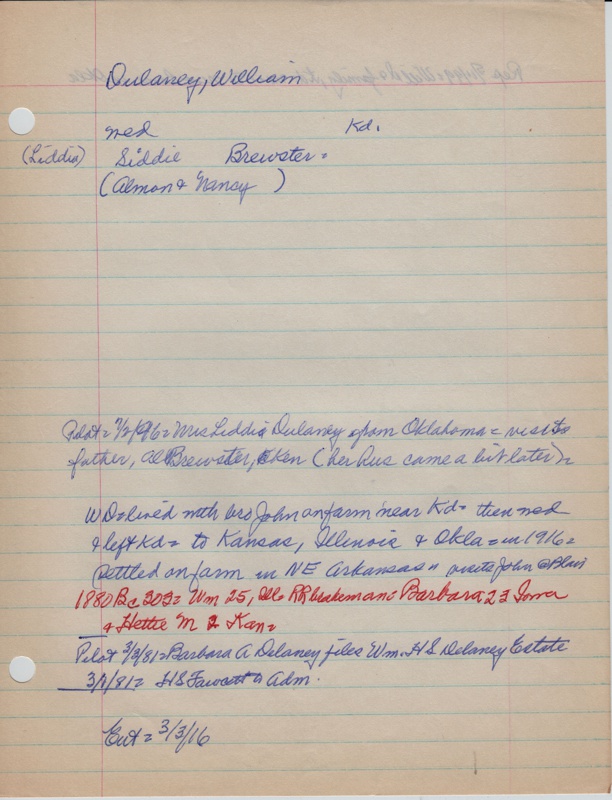 Dulaney, William
med Kd.
(Liddia) Siddie Brewster =
(Almon & Nancy )
Pilot = 7/2/96 = Mrs Liddia Dulaney from Oklahoma = visits
father, Al Brewster, (her hus came a bit later) =
WD = lived with bro John on farm near Kd = then med
& left Kd = to Kansas, Illinois & Okla = in 1916 =
settled on farm in NE Arkansas = visits John @ Blair
1880 Bc 202 = Wm 25, Ills RR brakeman = Barbara 23 Iowa
& Hettie M 2 Kan =
Pilot 3/3/81 = Barbara A Delaney files Wm. H S Delaney Estate
3/1/81 = HS Fawcett Adm.
Ent = 3/3/16